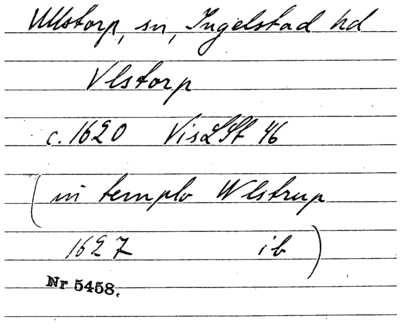 Ullstorp, sn, Ingelstad hd
Vlstorp
c. 1620 VisLSt 46
(in templo Wlstrup
1627 ib)
Nr 5458.